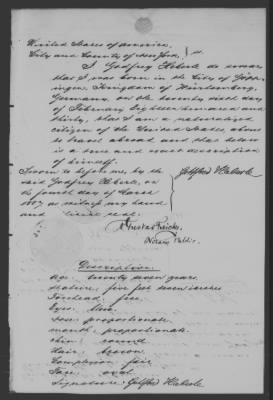 United States of America,
City and County of New York, } ss.
I Godfrey Heberle do swear
that I was born in the City of
Kingdom of Würtemberg,
Germany, on the twenty sixth day
of February Eighteen hundred and
thirty, that I am a naturalized
citizen of the United States about
to travel abroad and that below
is a true and exact description
of himself.
Sworn to before me, by the
said Godfrey Heberle, on
the fourth day of March
as witness my hand
and official seal.
Gottfried Heberle
Gustav
Notary Public.
Description.
Age: twenty seven years.
Stature: five feet seven inches
Forehead: free
Eyes: blue.
Nose: proportionate.
mouth: proportionate.
Chin: round
Hair: brown
Complexion: fair
Face: oval
Signature: Gottfried Heberle